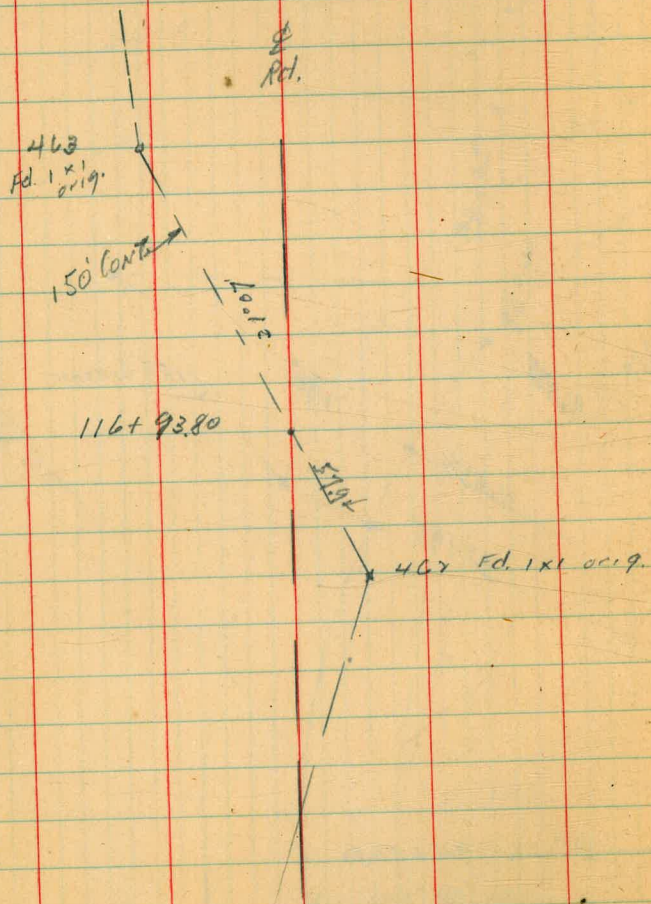 ℄
Rd.
463
Fd. 1x1
orig.
150' Cont.
116+93.80
462 Fd. 1x1 orig.